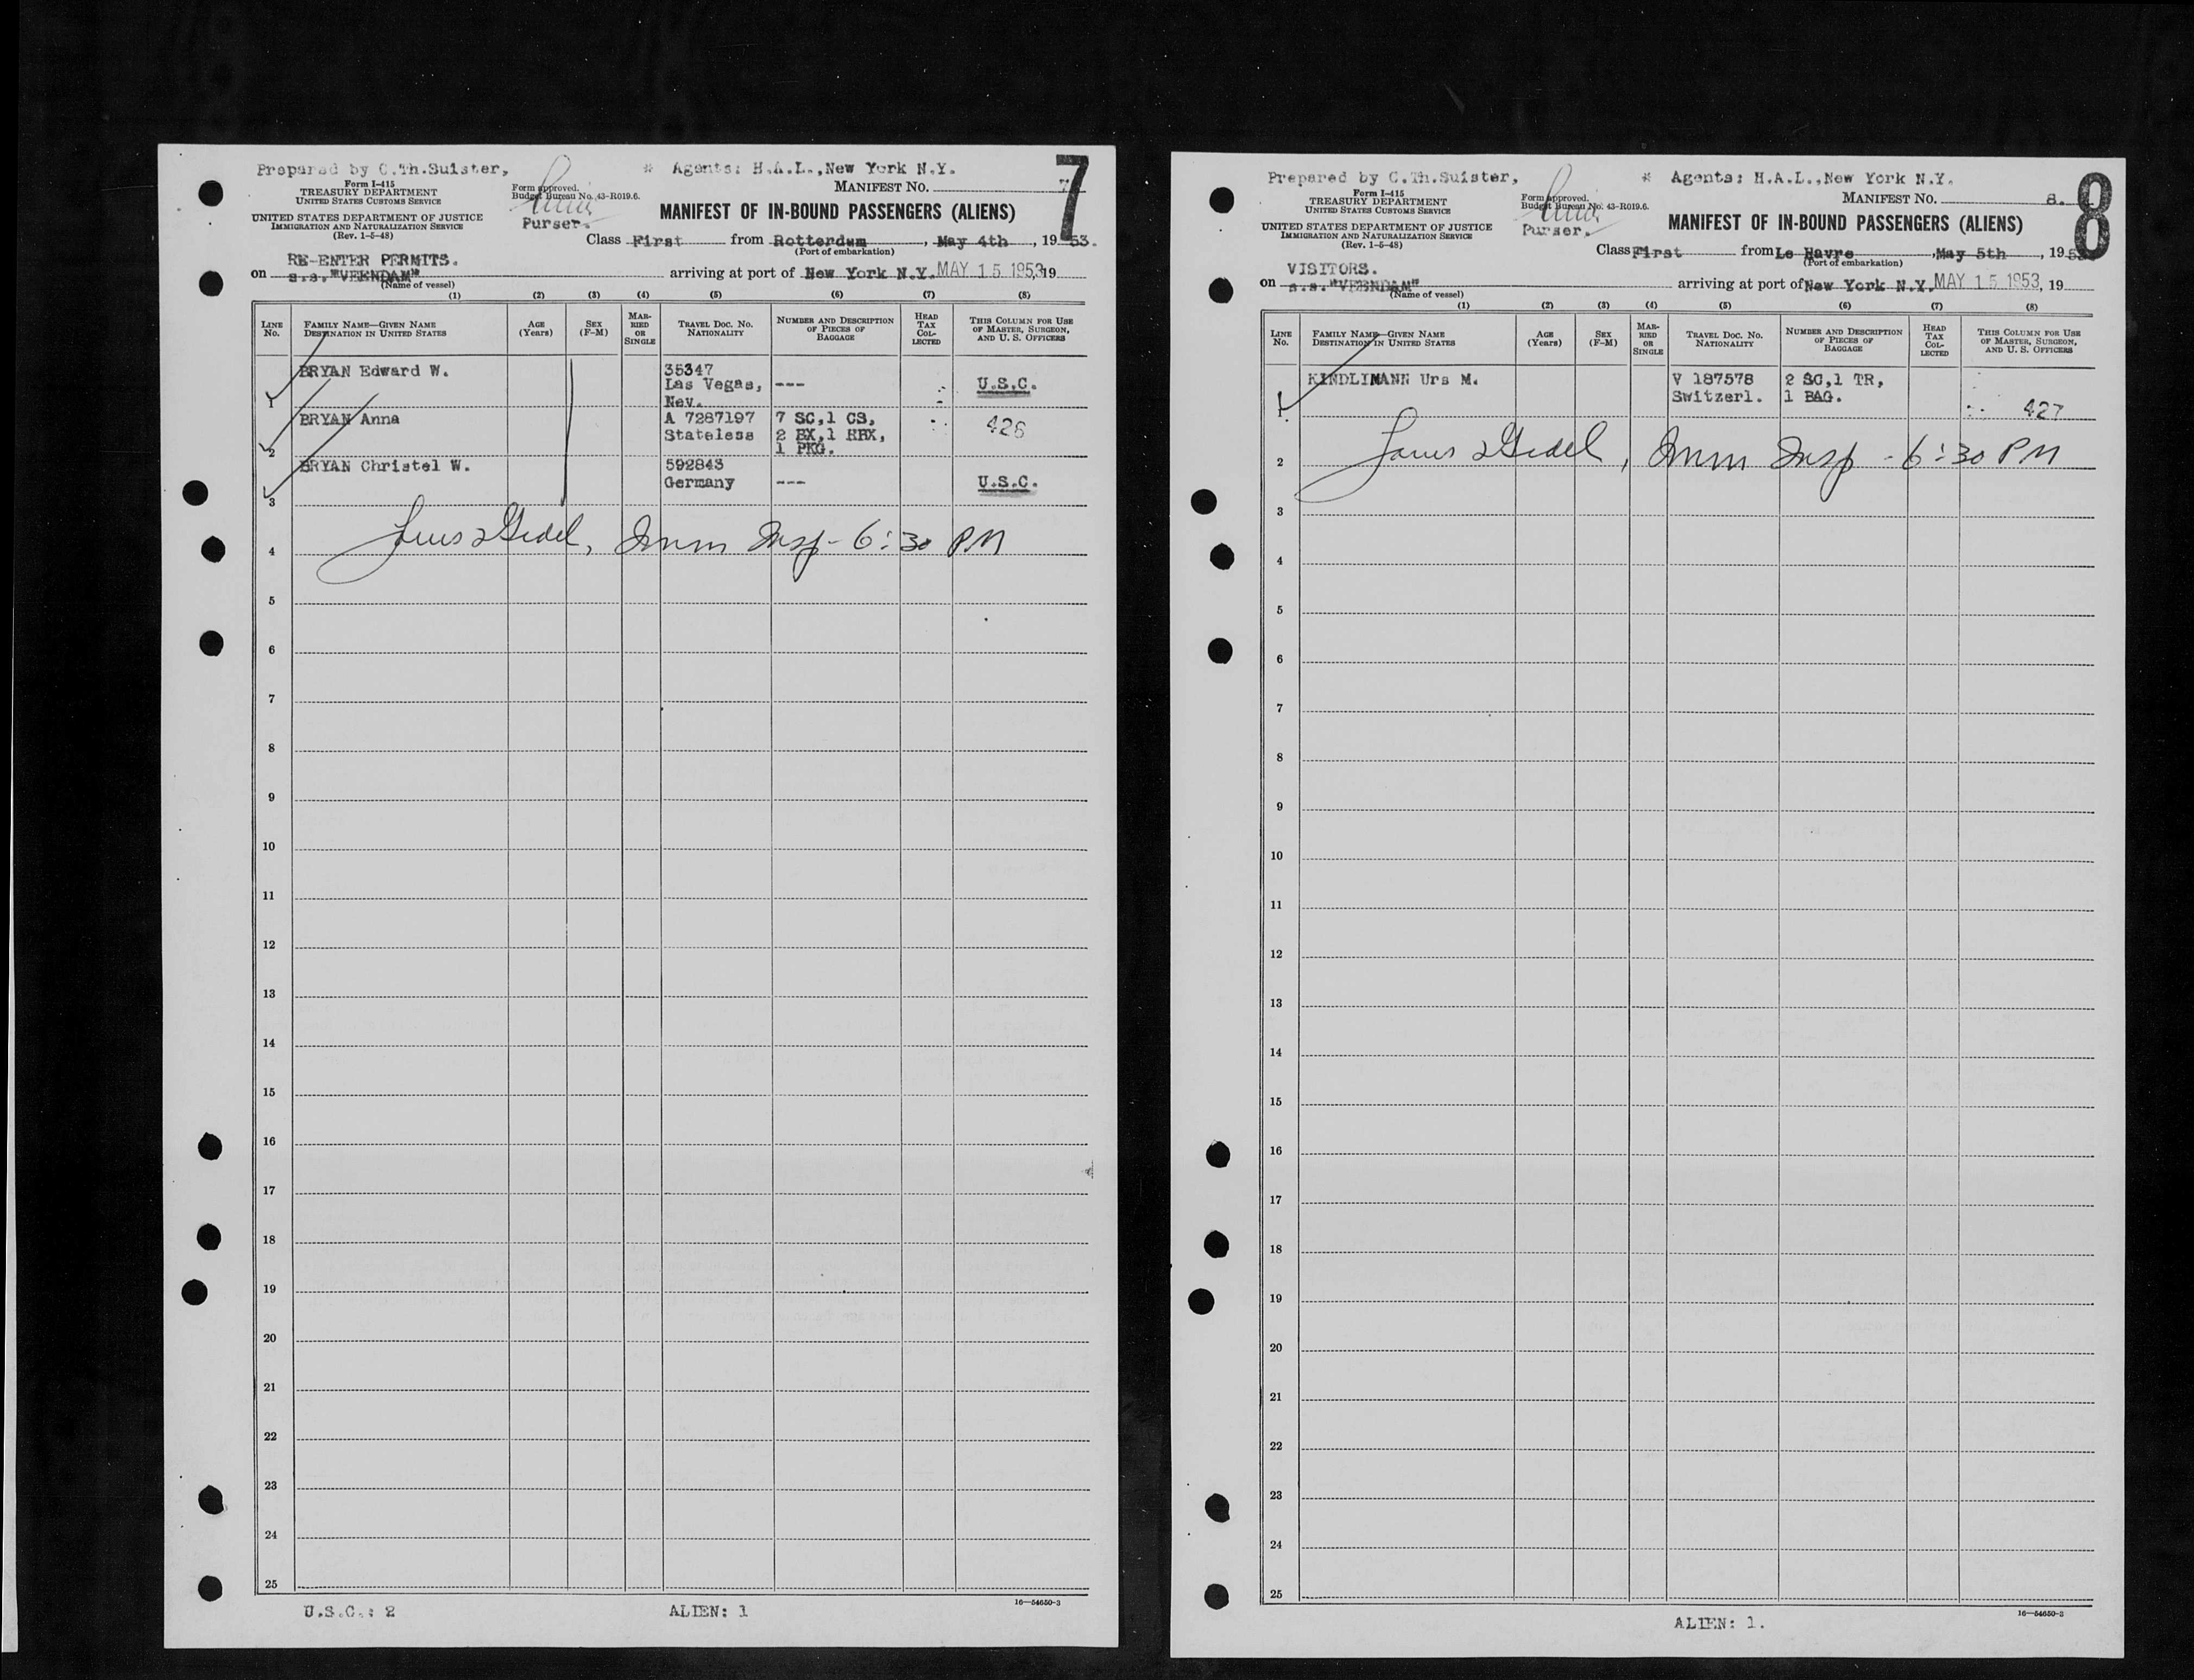 Prepared by C.Th.Suister, * Agents: H.A.L.,New York N.Y.
7
Form I-415
TREASURY DEPARTMENT
UNITED STATES CUSTOMS SERVICE
UNITED STATES DEPARTMENT OF JUSTICE
IMMIGRATION AND NATURALIZATION SERVICE
(Rev. 1-5-48)
Form approved.
Budget Bureau No. 43-R019.6.
Purser.
MANIFEST NO. 7.
MANIFEST OF IN-BOUND PASSENGERS (ALIENS)
Class First from Rotterdam, May 4th, 1953.
(Port of embarkation)
RE-ENTER PERMITS.
on s.s."VEENDAM" arriving at port of New York N.Y. MAY 15 1953, 19
(Name of vessel)
(1) (2) (3) (4) (5) (6) (7) (8)
LINE No. FAMILY NAME—GIVEN NAME DESTINATION IN UNITED STATES AGE (Years) SEX (F-M) MARRIED OR SINGLE TRAVEL DOC. NO. NATIONALITY NUMBER AND DESCRIPTION OF PIECES OF BAGGAGE HEAD TAX COLLECTED THIS COLUMN FOR USE OF MASTER, SURGEON, AND U. S. OFFICERS
BRYAN Edward W. 35347
Las Vegas, --- U.S.C.
1 Nev.
BRYAN Anna A 7287197 7 SC,1 CS, 426
Stateless 2 BX,1 HBX,
2 1 PKG.
BRYAN Christel W. 592843
Germany --- U.S.C.
3
4 Imm Insp - 6:30 PM
5
6
7
8
9
10
11
12
13
14
15
16
17
18
19
20
21
22
23
24
25
16—54650-3
U.S.C.: 2 ALIEN: 1
Prepared by C.Th.Suister, * Agents: H.A.L.,New York N.Y.
8
Form I-415
TREASURY DEPARTMENT
UNITED STATES CUSTOMS SERVICE
UNITED STATES DEPARTMENT OF JUSTICE
IMMIGRATION AND NATURALIZATION SERVICE
(Rev. 1-5-48)
Form approved.
Budget Bureau No. 43-R019.6.
Purser.
MANIFEST NO. 8.
MANIFEST OF IN-BOUND PASSENGERS (ALIENS)
Class First from Le Havre, May 5th, 1953
(Port of embarkation)
VISITORS.
on s.s."VEENDAM" arriving at port of New York N.Y. MAY 15 1953, 19
(Name of vessel)
(1) (2) (3) (4) (5) (6) (7) (8)
LINE No. FAMILY NAME—GIVEN NAME DESTINATION IN UNITED STATES AGE (Years) SEX (F-M) MARRIED OR SINGLE TRAVEL DOC. NO. NATIONALITY NUMBER AND DESCRIPTION OF PIECES OF BAGGAGE HEAD TAX COLLECTED THIS COLUMN FOR USE OF MASTER, SURGEON, AND U. S. OFFICERS
KINDLIMANN Urs M. V 187578 2 SC,1 TR,
Switzerl. 1 BAG.
1 427
2 Imm Insp - 6:30 PM
3
4
5
6
7
8
9
10
11
12
13
14
15
16
17
18
19
20
21
22
23
24
25
16—54650-3
ALIEN: 1.